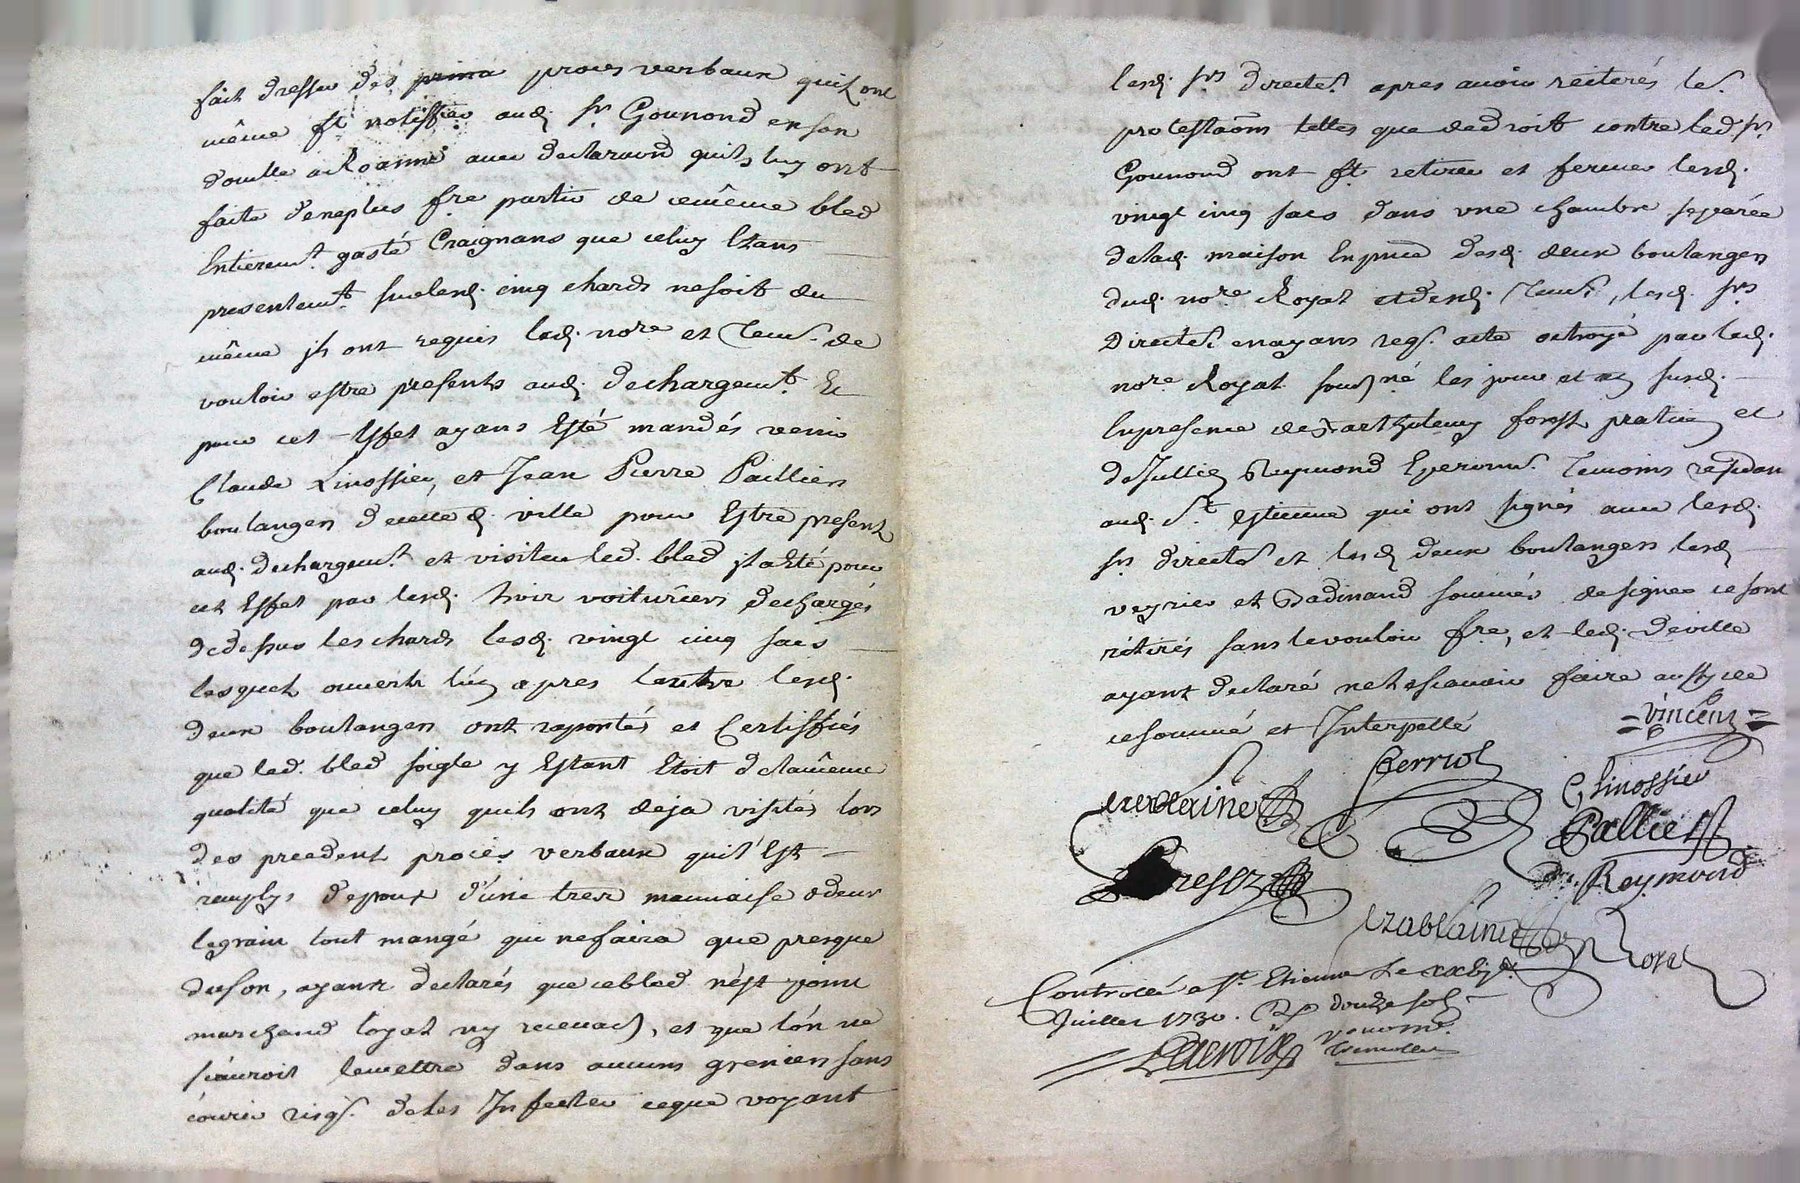 fait dresser des prima proces verbaux quils ont
même ft notiffier aud. sr Gounond en son
domlle a Roanne avec declaraon quils luy ont
faite deneplus fre partir de cemême bled
Entieremt. gasté Craignans que celuy Etans
presentemt. surlesd. cinq chards nesoit du
même jls ont requis led. nore et TemS. de
vouloir estre presents aud. dechargemt. Et
pour cet Effet ayans Esté mandés venir
Claude Linossier, et Jean Pierre Paillier
boulangers decette d. ville pour Estre presents
aud. dechargemt. et visiter led. bled jl a été pour
cet Effet par lesd. trois voituriers dechargés
de dessus les chards lesd. vingt cinq sacs
lesquels ouverts l'un apres lautre lesd.
deux boulangers ont raportés et Certiffiés
que led. bled soigle y Estant Etoit delamême
qualité que celuy quils ont deja visités lors
des precedent procès verbaux quil Est
remplys depoux d'une tres mauvaise odeur
legrain tout mangé qui nefaira que presque
duson, ayant declarés que cebled n'est point
marchand loyal ny recevable, et que lon ne
scauroit lemettre dans aucuns greniers sans
courir risq. deles Infecter ceque voyant
lesd. srs directrs. apres avoir reiterés les.
protestaons telles que dedroit contre led. sr
Gounond ont ft retirer et fermer lesd.
vingt cinq sacs dans une chambre separée
delad. maison Enpnce desd. deux boulangers
dud. nore Royal et desd. Tems., lesd. srs
Directrs. enayans req. acte octroyé par led.
nore Royal sousné les jour et an susd.
Enpresence de Barthelemy forest praticien et
de Jullien Reymond Eperonr. Temoins residans
aud. St. Estienne qui ont signés avec lesd.
srs directrs et lesd. deux boulangers lesd.
veyrier et Badinand sommés designer cesont
retirés sans levouloir fre, et led. deville
ayant declaré nelescavoir faire aussy de
cesommé et Interpellé
= vincent =
Ferriol
C Linossier
Pallier
Reymond
Controllé a St. Etienne le
Juillet 1730. R douze sols
Lacroix